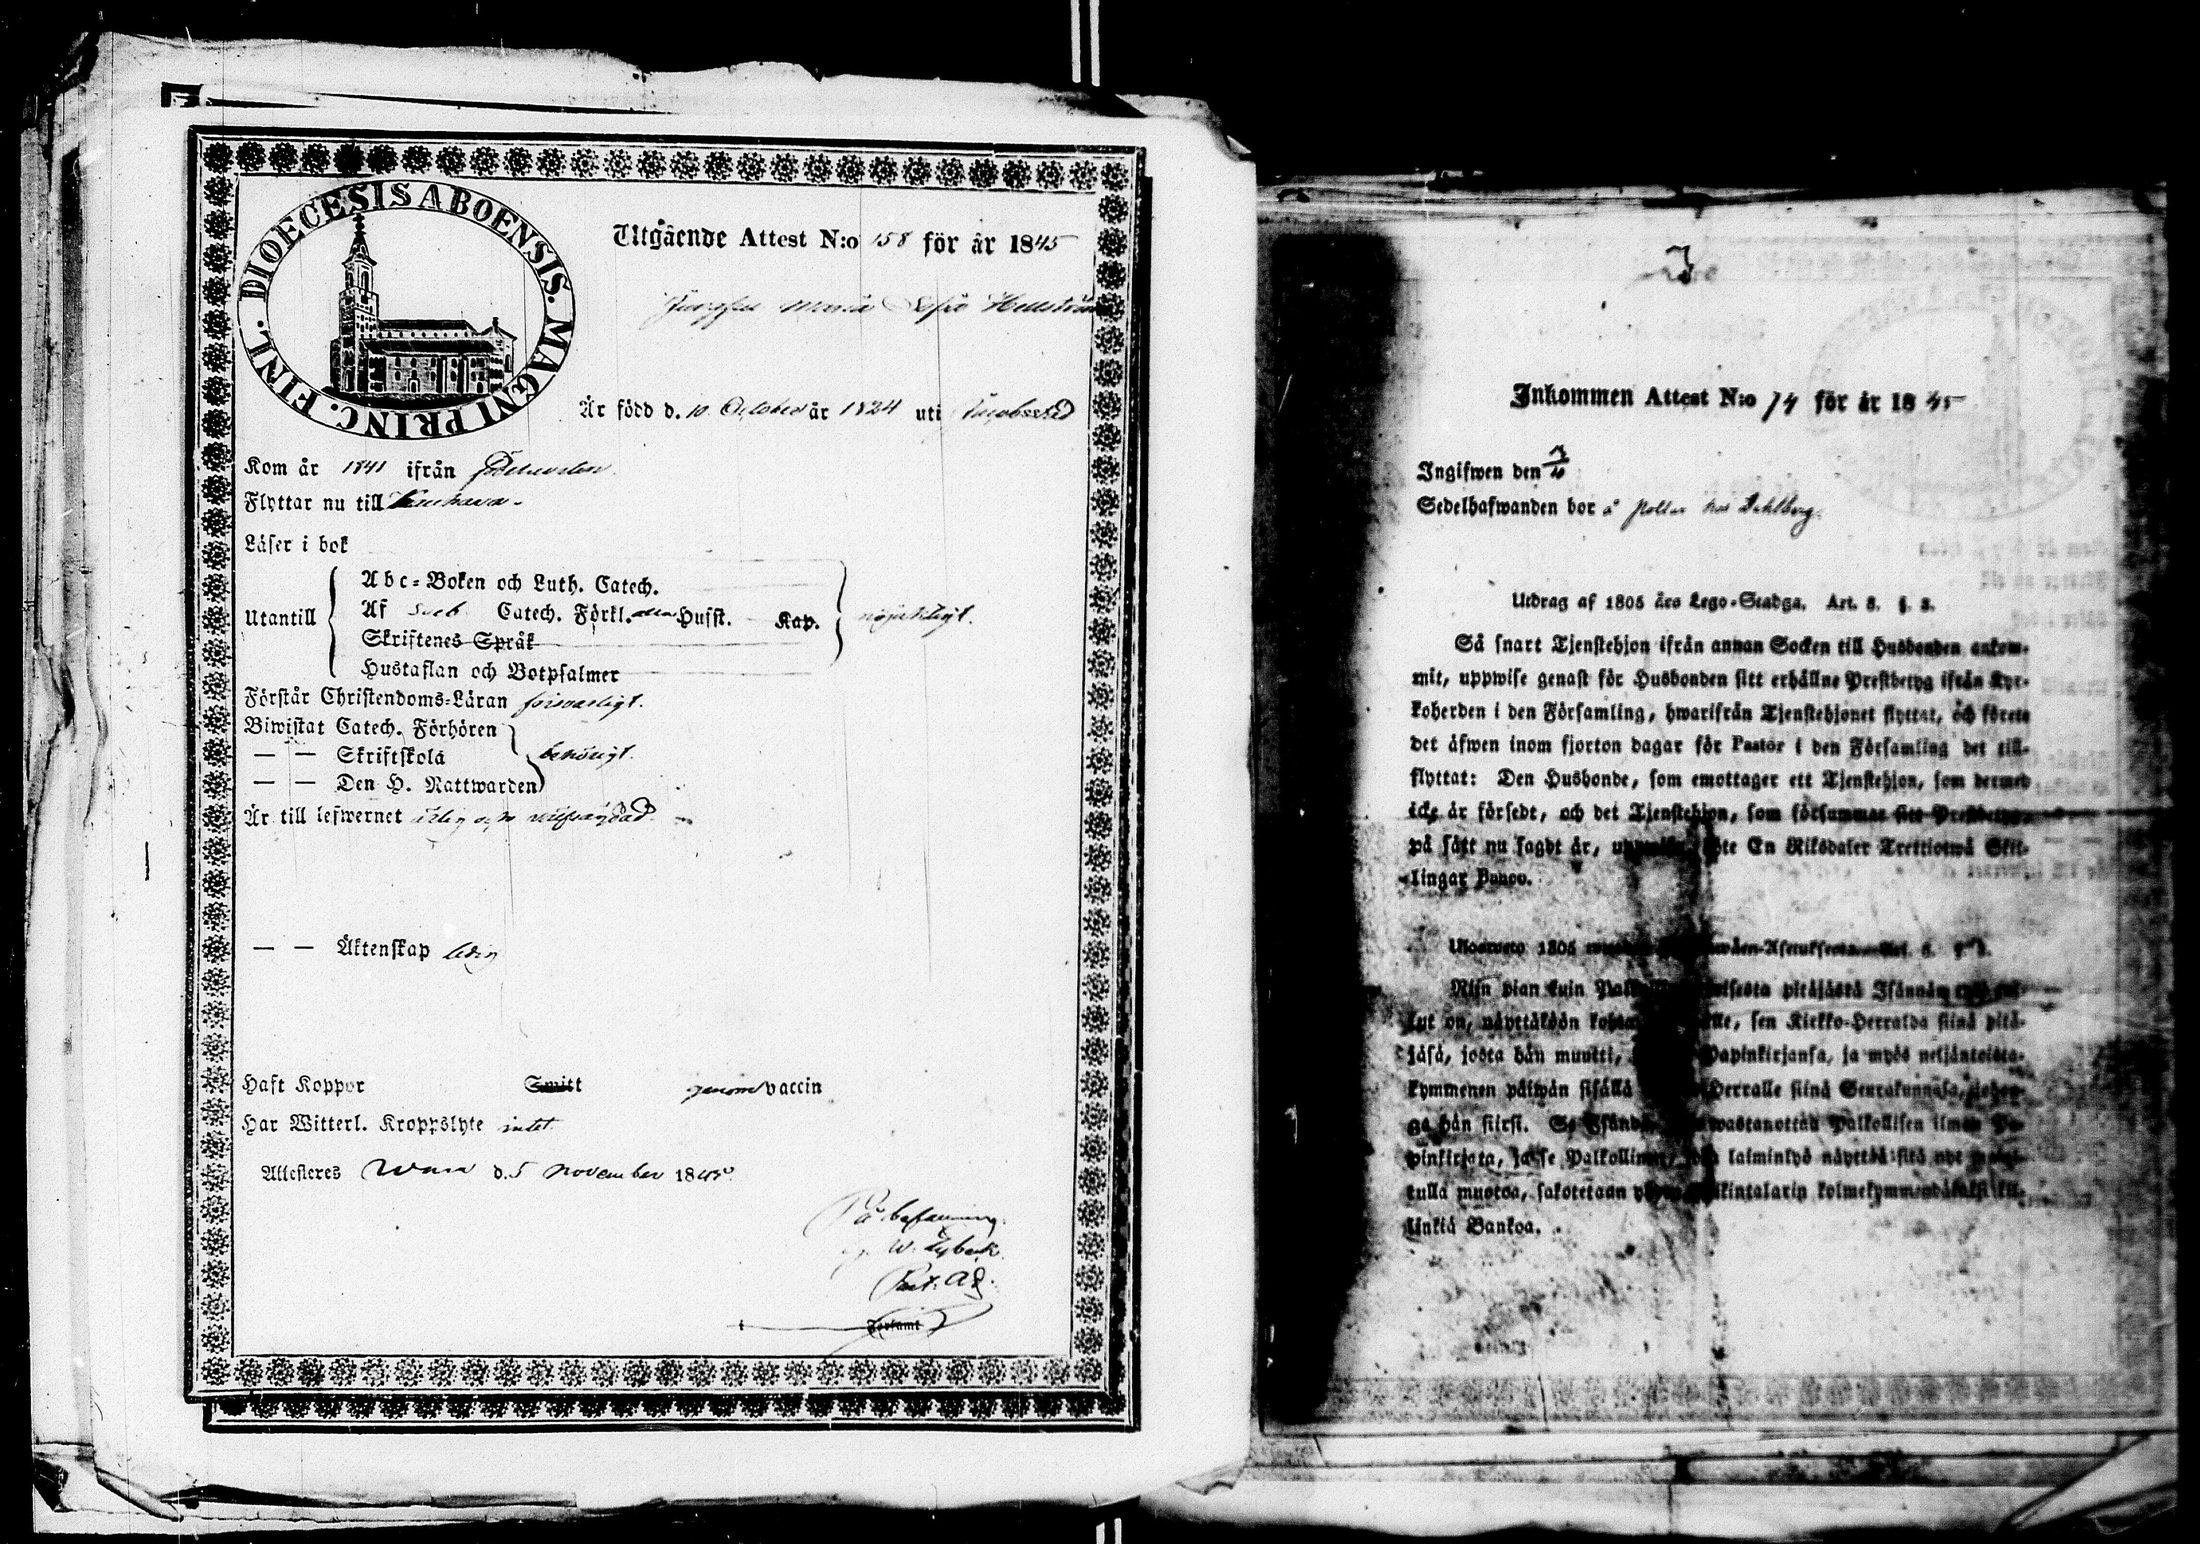 DIOECESIS ABOENSIS. MAGNI PRINC. FINL.
Utgående Attest N:o 158 för år 1845
Jungfru Maria Sofia Hellström
Är född d. 10 October år 1824 uti Jacobsstad
Kom år 1841 ifrån födelseorten
Flyttar nu till Kauhava.
Läser i bok
Utantill
Abc-Boken och Luth. Catech.
Af Sveb. Catech. Förkl. Husst. Kap.
nöjaktigt.
Skriftenes Språk
Hustaflan och Botpsalmer
Förstår Christendoms-Läran försvarligt.
Biwistat Catech. Förhören
— — Skriftskola
behörigt.
— — Den H. Nattwarden
Är till lefwernet ärlig och välfrägdad.
— — Äktenskap ledig
Haft Koppor Smitt genom vaccin
Har Witterl. Kroppslyte intet
Attesteres Wasa d. 5 November 1845.
På befallning
W. Lybeck
Past. Adj.
i Församl
Inkommen Attest N:o 74 för år 1845
Ingifwen den
Sedelhafwanden bor å hos Dahlberg.
Utdrag af 1805 års Lego-Stadga. Art. 8. §. 2.
Så snart Tjenstehjon ifrån annan Socken till Husbonden ankom-
mit, uppwise genast för Husbonden sitt erhållne Prestbetyg ifrån Kyr-
koherden i den Församling, hwarifrån Tjenstehjonet flyttat, och förete
det äfwen inom fjorton dagar för Pastor i den Församling det till-
flyttat: Den Husbonde, som emottager ett Tjenstehjon, som dermed
icke är försedt, och det Tjenstehjon, som försummar sitt Prestbetyg,
på sätt nu sagdt är, uppwisa, böte En Riksdaler Trettiotwå Skil-
lingar Banco.
Ulosweto 1805
Niin pian kuin pitäjästä Isännän
on, näyttäköön sen Kirkko-Herralda siinä pitä-
jäsä, josta hän muutti, Papinkirjansa, ja myös neljäntoista-
kymmenen päiwän sisällä Herralle siinä Seurakunnasa,
hän siirsi. Palkollisen ilman Pa-
pinkirjata, ja se laiminlyö näyttää sitä nyt
tulla muotoa, sakotetaan kolmekymmendäkaksi kil-
linkiä Bankoa.